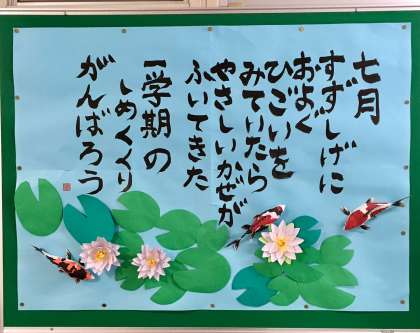 七月
すずしげに
およぐ
ひごいを
みていたら
やさしいかぜが
ふいてきた
一学期の
しめくくり
がんばろう